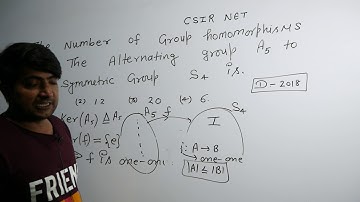 CSIR NET
The Number of Group homomorphisms
The Alternating group A5 to
Symmetric Group S4 is.
D-2018
(2) 12 (3) 20 (4) 6
Ker(A5) Δ A5
Ker(f) = {e}
f is one-one
A5 f S4
I
f: A → B
one-one
|A| ≤ |B|
FRIEN